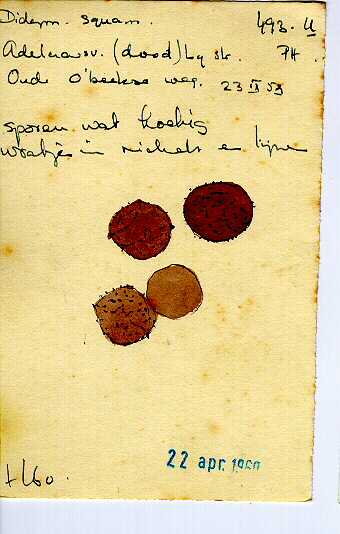 Didym. squam. 493. II
Adelaarsv. (dood) bij str. PH.
Oude O'beekse weg. 23 IX 58
sporen wat hoekig
wratjes in richels en lijnen
22 apr. 1960